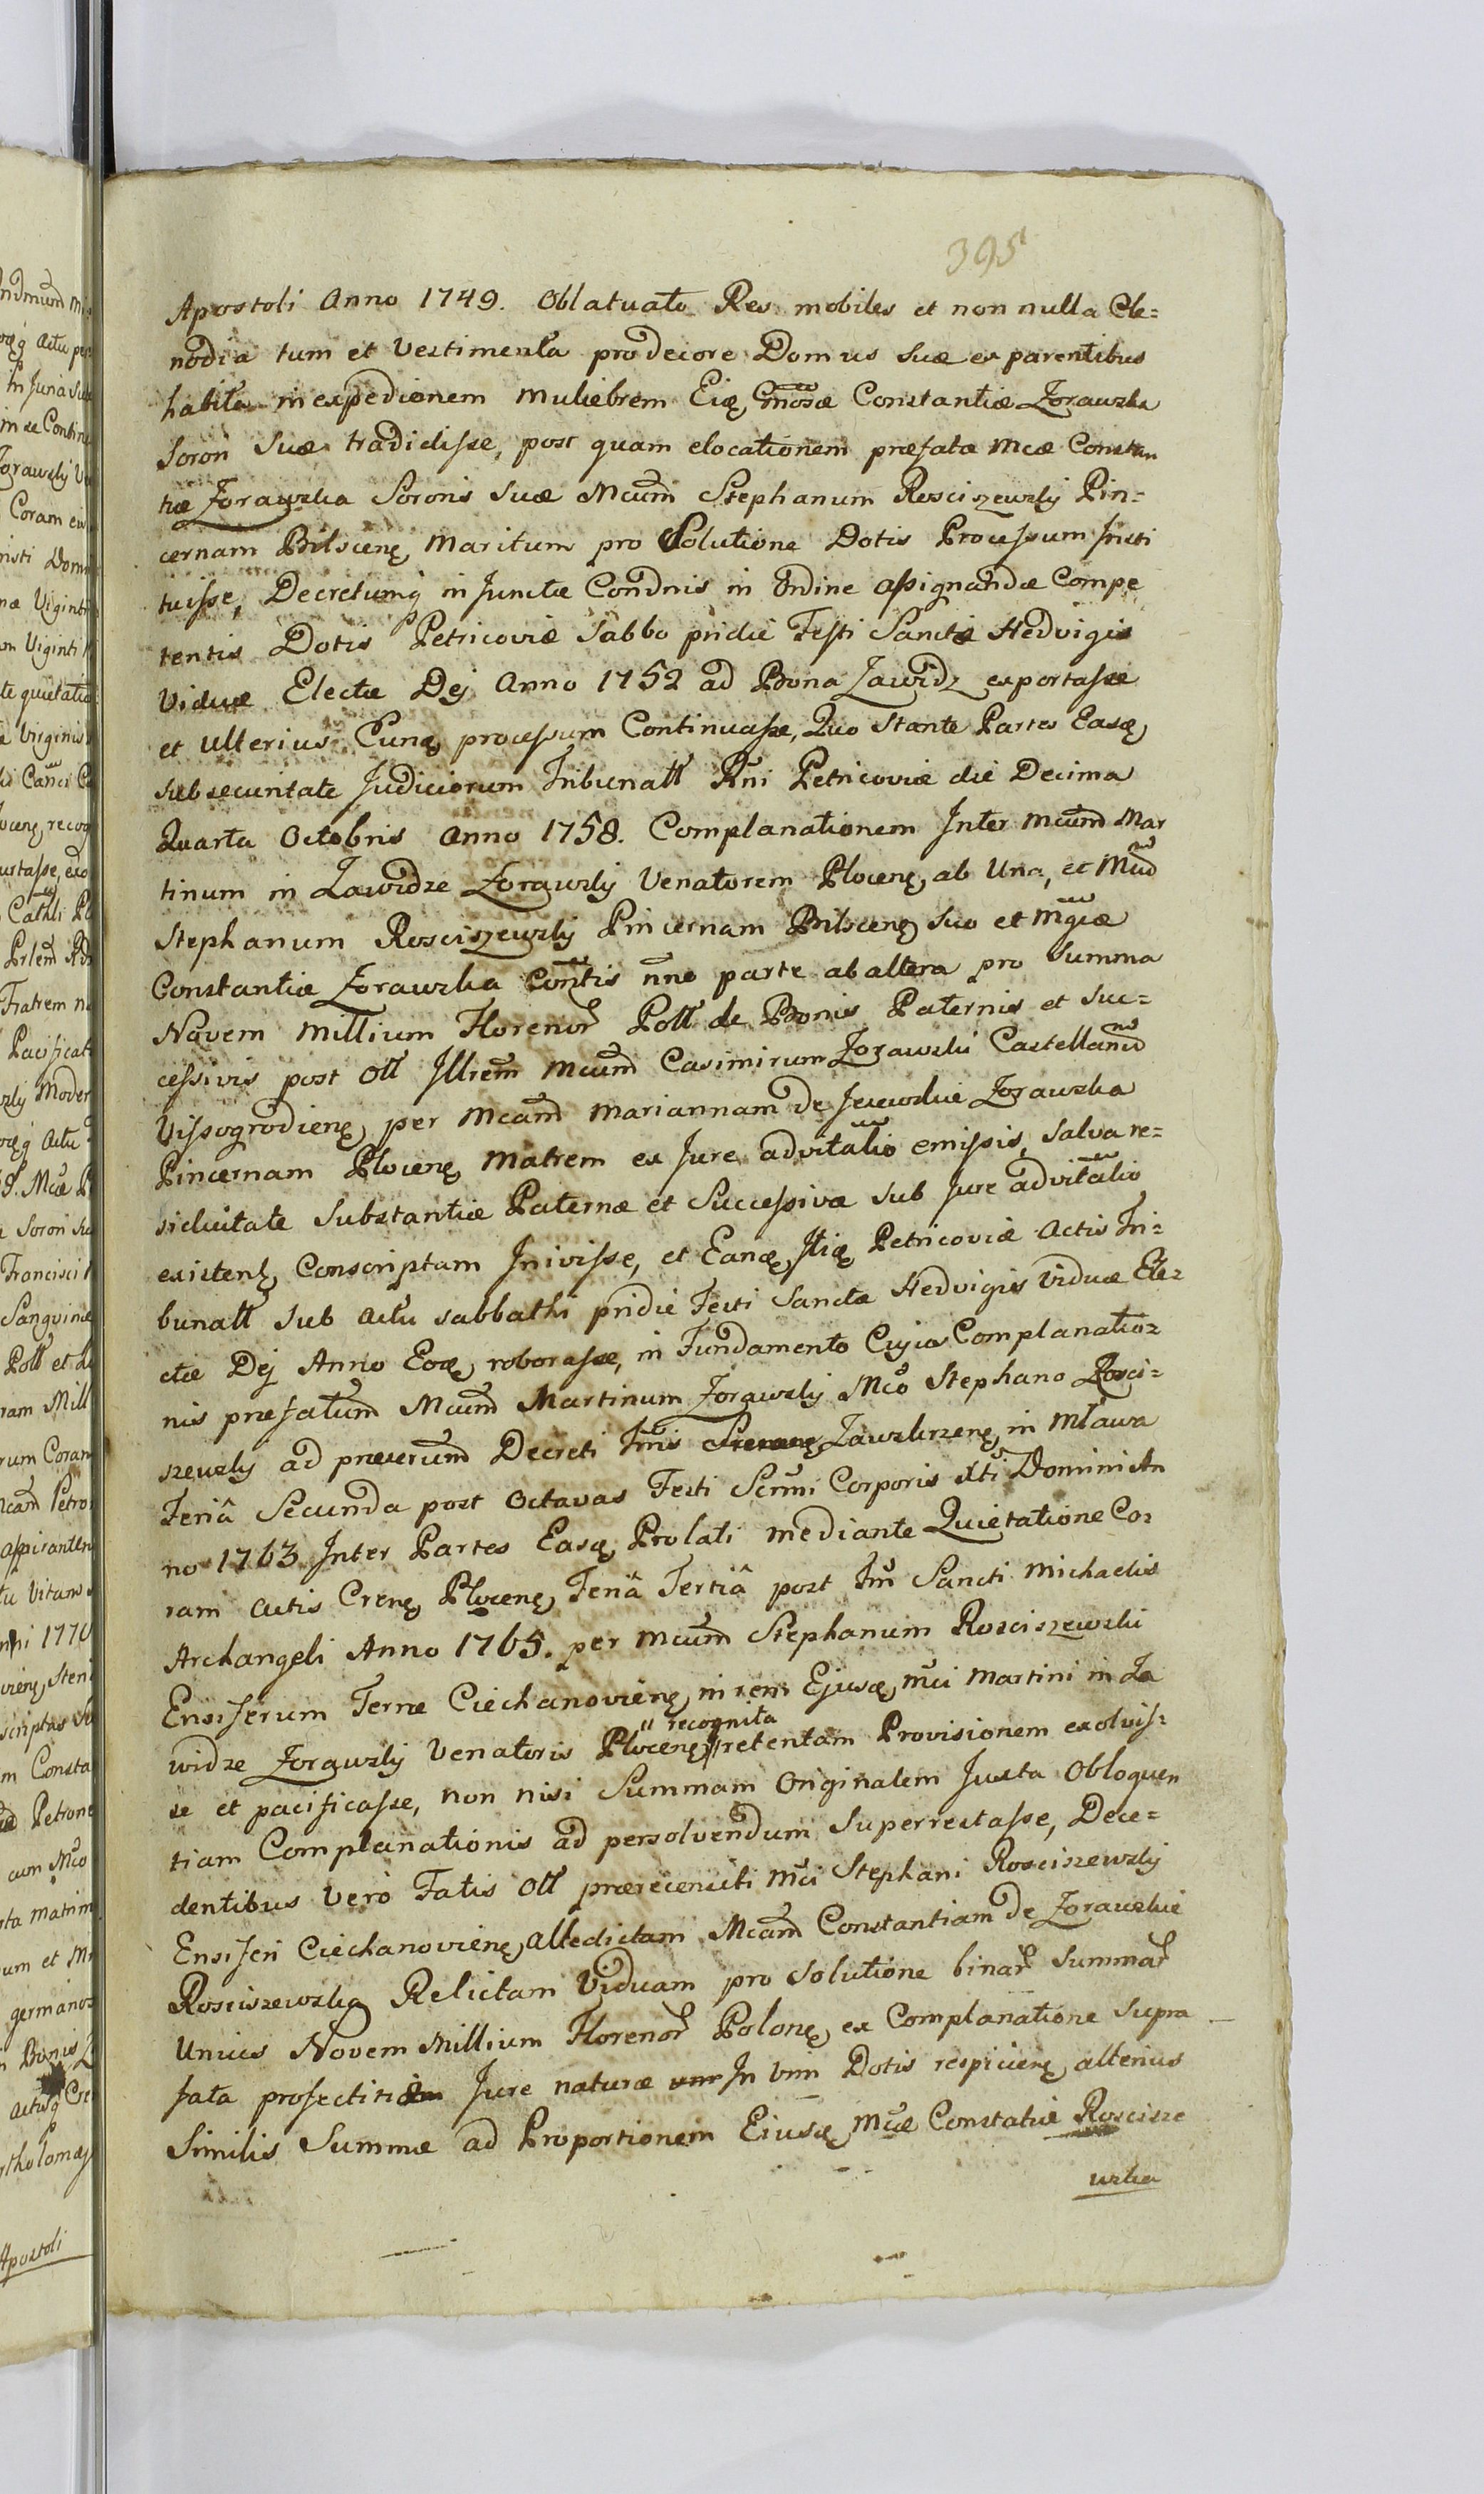 395
Apostoli Anno 1749. Oblatuato Res mobiles et non nulla Cle=
nodia tum et Vestimenta pro decore Domus suæ ex parentibus
habita in expedionem muliebrem Eię Gnosæ Constantiæ Zorawska
Sorori Suæ tradidisse, post quam elocationem præfatæ Mcæ Constan
tiæ Zorawska Sororis Suæ Mcum Stephanum Rosciszewsky Pin=
cernam Bilscenę Maritum pro Solutione Dotis Processum Insti
tuisse, Decretumq in Juncta Condnis in Ordine assignandæ Compe
tentis Dotis Petricoviæ Sabbo pridie Festi Sanctæ Hedvigis
Viduæ Electæ Dej Anno 1752 ad Bona Zawidz exportasse
et Ulterius Eunę processum Continuasse, Quo Stante Partes Easę
sub securitate Judiciorum Tribunall Rni Petricoviæ die Decima
Quarta Octobris Anno 1758. Complanationem Inter Mcum Mar
tinum in Zawidze Zorawsky Venatorem Plocenę, ab Una, et Mcum
Stephanum Rosciszewsky Pincernam Bilscenę suo et Mgicæ
Constantiæ Zorawska Contis nne parte ab altera pro Summa
Novem Millium Florenor Poll de Bonis Paternis et Suc=
cessivis post Oll Illrem Mcum Casimirum Zorawski Castellanum
Vissogrodienę per Mcam Mariannam de Zorawska
Pincernam Plocenę Matrem ex Jure advitalio emissis, salva re=
siduitate Substantiæ Paternæ et Successivæ sub Jure advitalio
existenę Conscriptam Inivisse, et Eanę Ibię Petricoviæ Actis Tri=
bunall Sub actu Sabbathi pridie Festi Sanctæ Hedvigis Viduæ Ele=
ctæ Dej Anno Eoę roborasse, in Fundamento Cujus Complanatio=
nis præfatum Mcum Martinum Zorawsky Mco Stephano Rosci=
szewsky ad Decreti Tmis Zawskrzenę in Mława
Feriâ Secunda post Octavas Festi Scrmi Corporis Xti Domini An
no 1763 Inter Partes Easę Prolati mediante Quietatione Co=
ram Actis Crenę Plocenę Feriâ Tertiâ post Fm Sancti Michaelis
Archangeli Anno 1765. per Mcum Stephanum Rosciszewski
Ensiferum Terræ Ciechanovienę in rem Ejusę Mci Martini in Za
widze Zorawsky Venatoris Plocenę // recognita retentam Provisionem exolvis=
se et pacificasse, non nisi Summam Originalem Juxta Obloquen
tiam Complanationis ad persolvendum Superrestasse, Dece=
dentibus vero Fatis Oll prærecensiti Mci Stephani Rosciszewsky
Ensiferi Ciechanovienę, attedictam Mcam Constantiam de Zorawskie
Rosciszewska Relictam Viduam pro Solutione binar Summar
Unius Novem Millium Florenor Polonę ex Complanatione Supra
fata Jure naturæ In vim Dotis respicienę, alterius
Similis Summæ ad Proportionem Eiusę Mcæ Constatiæ Roscisze
wska